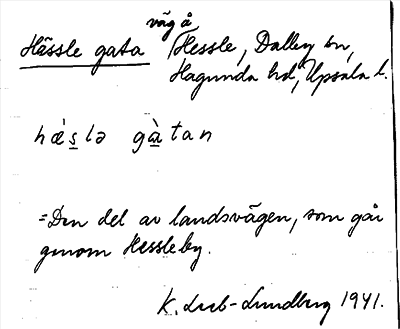 väg å
Hässle gata Hessle, Dalby sn,
Hagunda hd, Upsala l.
hǽslə gàtan
= Den del av landsvägen, som går
genom Hessleby.
K. Lieb-Lundberg 1941.